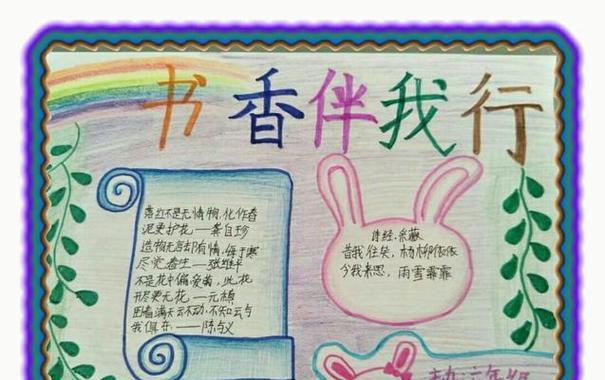 书香伴我行
落红不是无情物,化作春
泥更护花——龚自珍
造物无言却有情,每于寒
尽觉春生——张维屏
不是花中偏爱菊,此花
开尽更无花——元稹
卧看满天云不动,不知云与
我俱东——陈与义
诗经.采薇
昔我往矣,杨柳依依
今我来思,雨雪霏霏
六年级